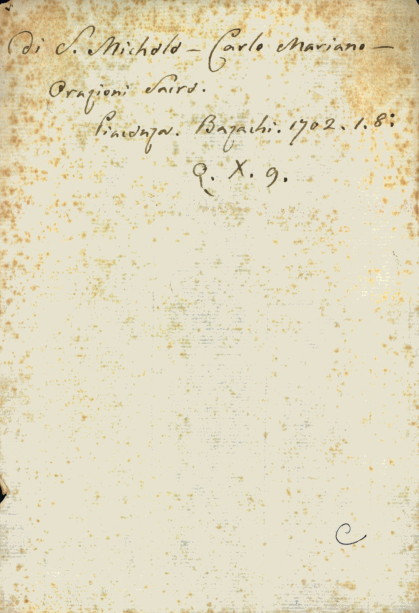 Di S. Michele - Carlo Mariano -
Orazioni Sacre.
Piacenza. Bazachi. 1702. 1. 8:
Q. X. 9.
C